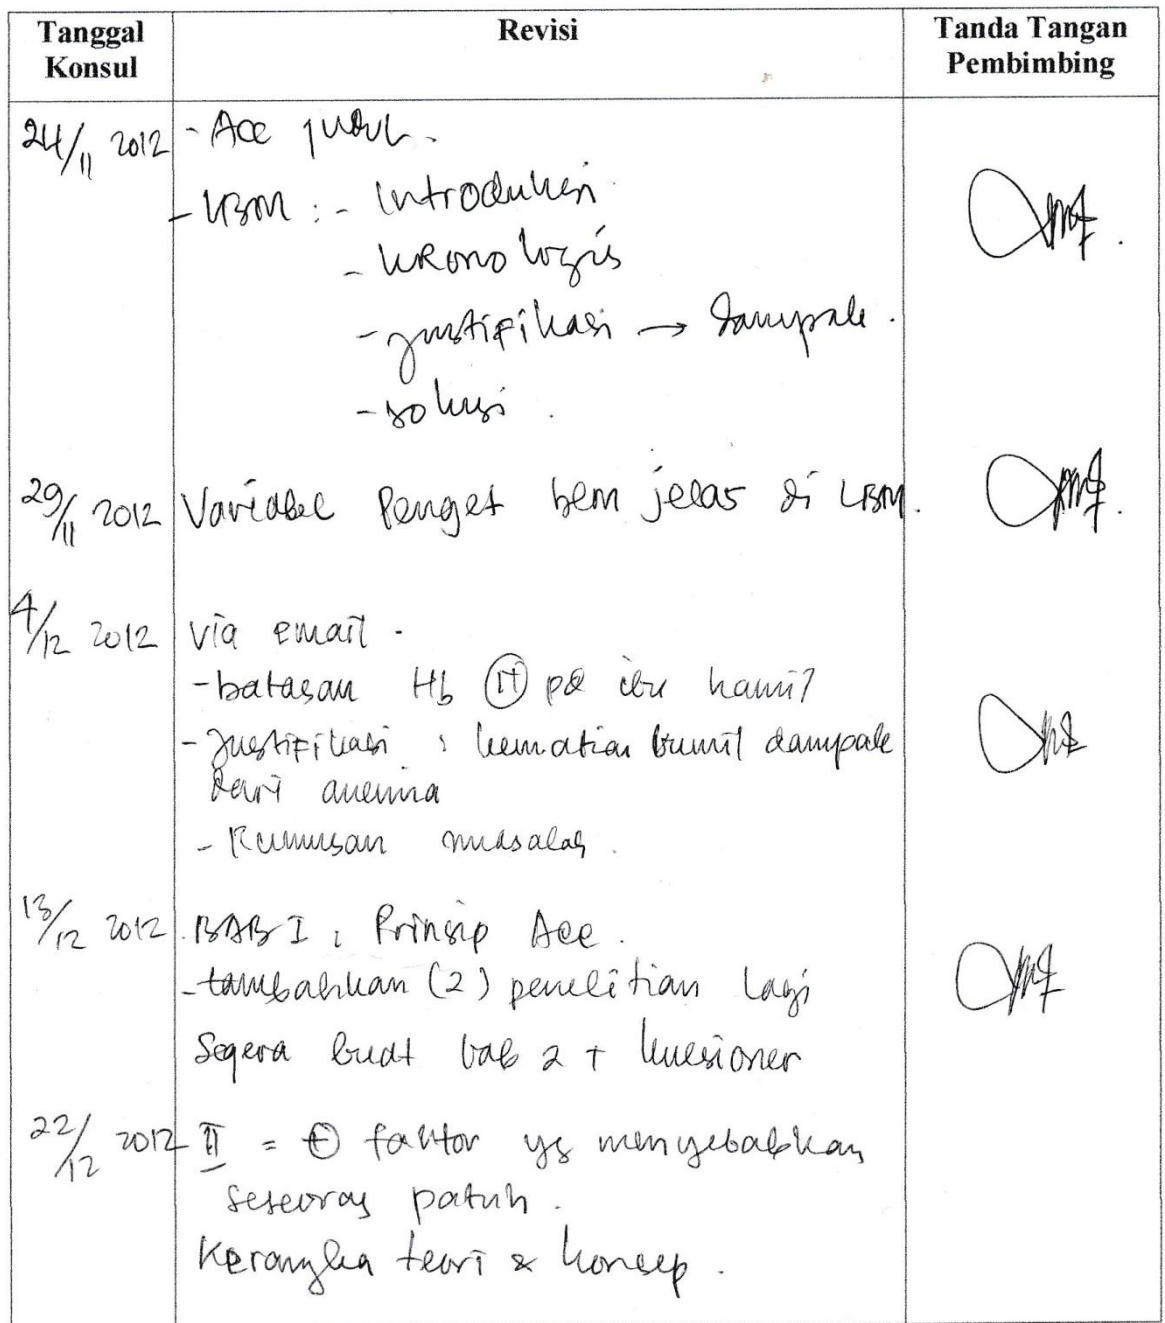 Tanggal Konsul Revisi Tanda Tangan Pembimbing
24/11 2012 - Acc judul.
- LBM : - Introduksi
- kronologis
- justifikasi → dampak.
- solusi.
29/11 2012 Variabel Penget blm jelas di LBM.
4/12 2012 via email.
- batasan Hb Ⓝ pd ibu hamil
- Justifikasi : kematian bumil dampak
dari anemia
- Rumusan masalah.
13/12 2012 BAB I : Prinsip Acc.
- tambahkan (2) penelitian lagi
Segera buat bab 2 + kuesioner
22/12 2012 II = ⊕ faktor yg menyebabkan
seseorag patuh.
Kerangka teori & konsep.